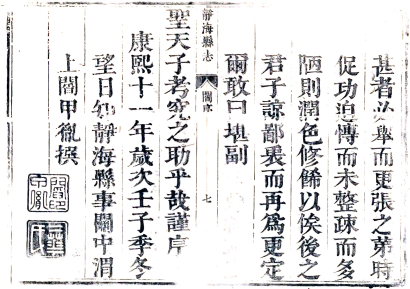 甚者必舉而更張之第時
促功迫傳而未整疎而多
陋則潤色修餙以俟後之
君子諒鄙衷而再為更定
爾敢曰堪副
靜海縣志
閻序
七
聖天子考究之助乎哉謹序
康熙十一年歲次壬子季冬
望日知靜海縣事關中渭
上閻甲胤撰